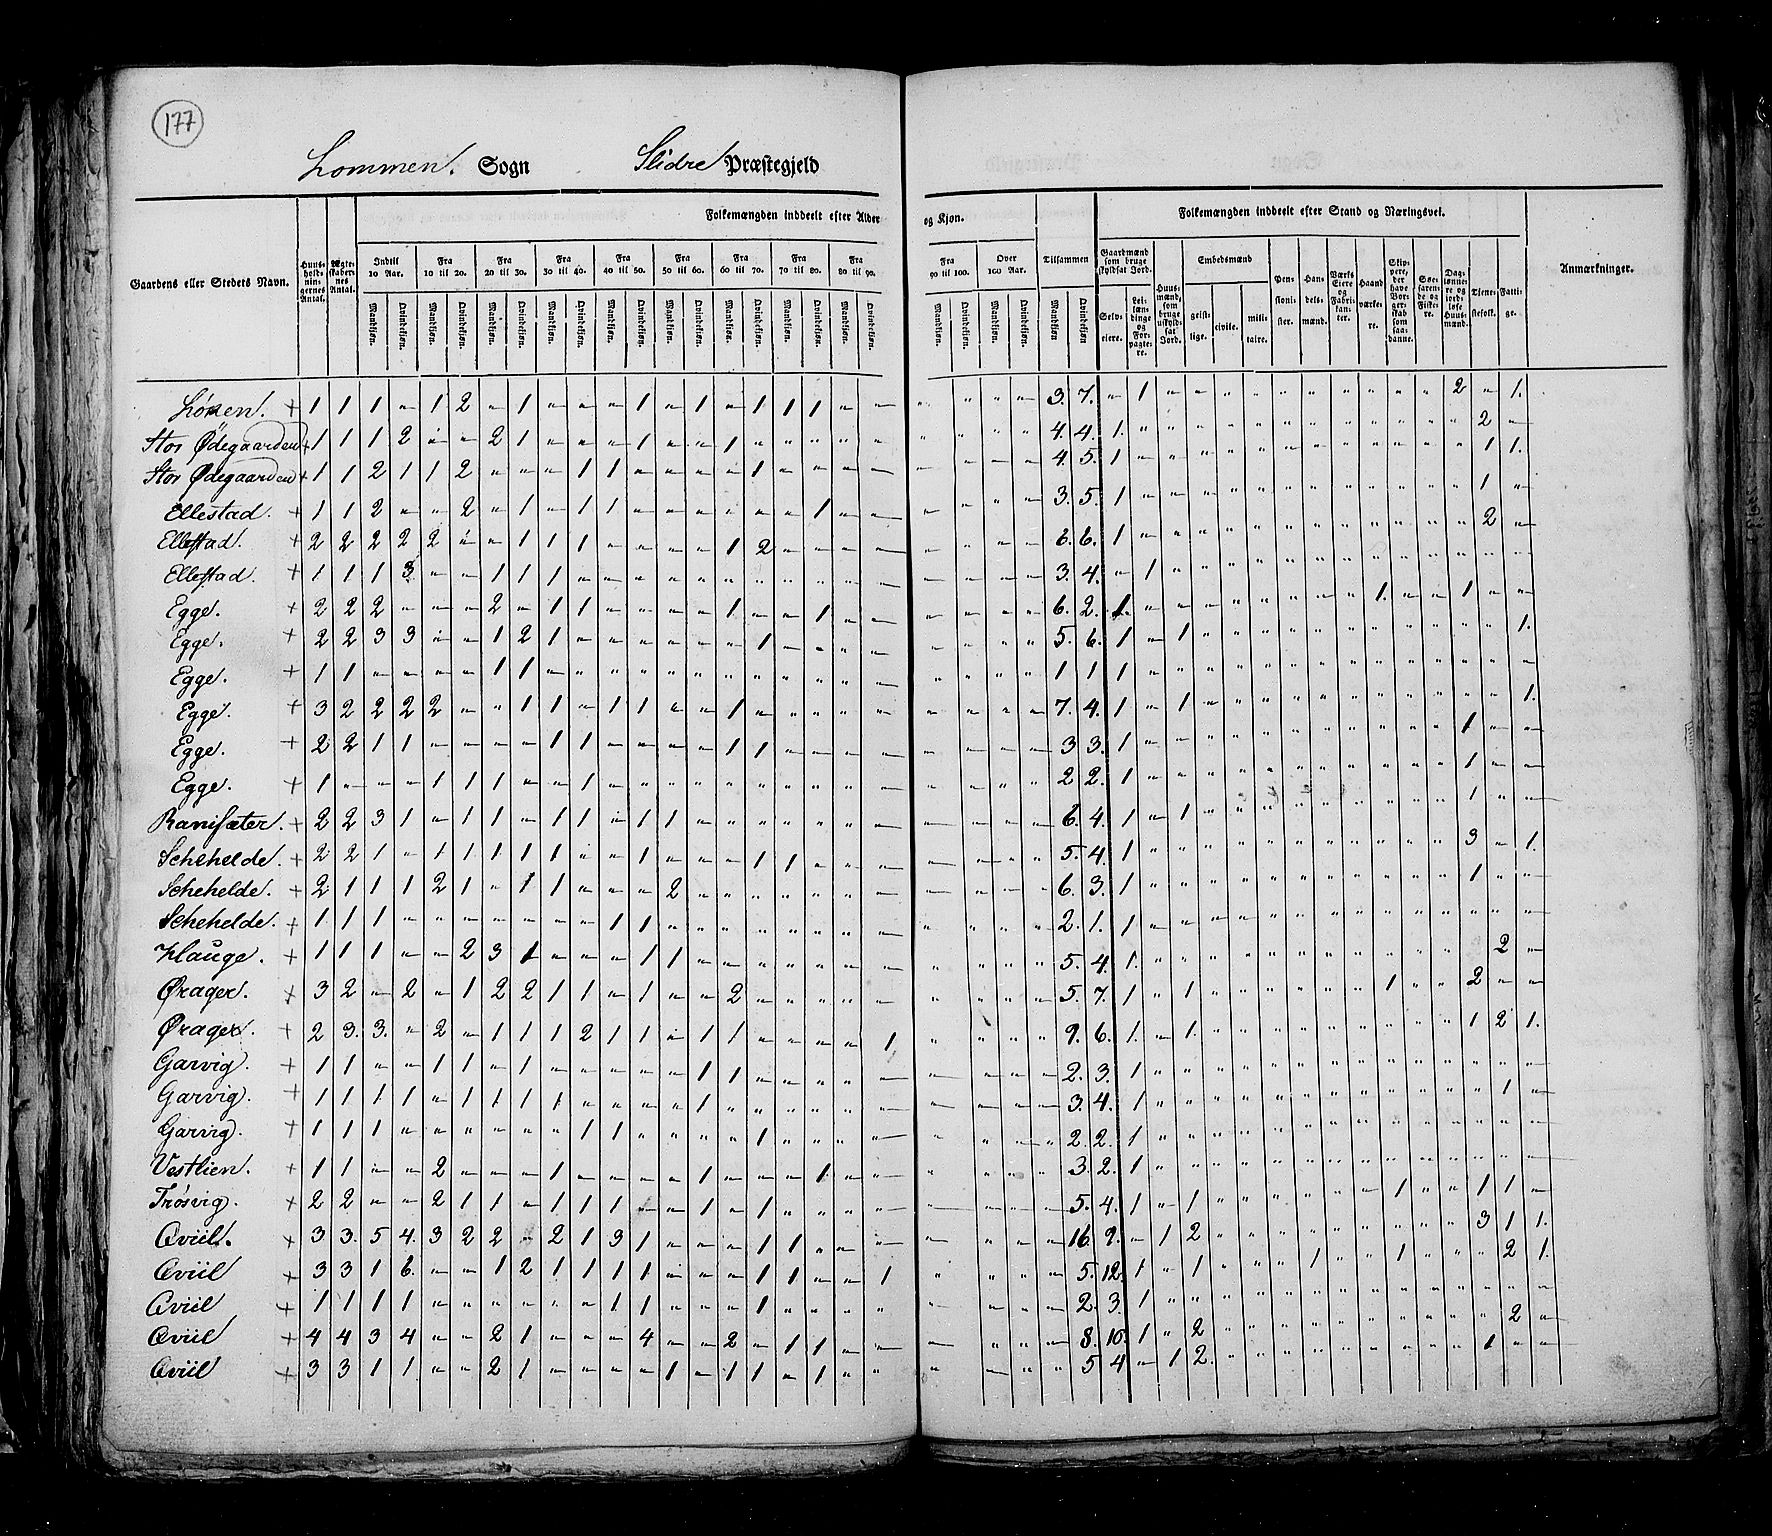 177
Lommen. Sogn Slidre Præstegjeld
Folkemængden inddeelt efter Alder og Kjøn.
Folkemængden inddeelt efter Stand og Næringsvei.
Gaardens eller Stedets Navn.
Huus-holdnin-gernes Antal.
Ægte-skaber-nes Antal.
Indtil 10 Aar.
Fra 10 til 20.
Fra 20 til 30.
Fra 30 til 40.
Fra 40 til 50.
Fra 50 til 60.
Fra 60 til 70.
Fra 70 til 80.
Fra 80 til 90.
Fra 90 til 100.
Over 100 Aar.
Tilsammen
Mandkjøn. Qvindekjøn.
Gaardmænd som bruge skyldsat Jord.
Selv-eiere.
Lei-lændinge og For-pagte-re.
Huus-mænd, som bruge uskyld-sat Jord.
Embedsmænd
geist-lige.
civile.
mili-taire.
Pen-sioni-ster.
Han-dels-mænd.
Værks Eiere og Fabri-kan-ter.
Haand værke-re.
Skip-pere, der have Bor-ger-skab som saa-danne.
Søe-farende og Fiske-re.
Dag-lønne-re og jord-løse Huus-mænd.
Tjene-stefolk.
Fatti-ge.
Anmærkninger.
Lónen. + 1 1 1 – 1 2 – 1 – – – 1 – 1 – 1 1 1 – – 3. 7. – 1 2 – 1.
Stor Ødegaarden + 1 1 1 2 – – 2 1 – – – 1 – – 1 4. 4. 1. 2 –
Stor Ødegaarden + 1 1 2 1 1 2 – – – 1 1 – – – – 1 4. 5. 1 1 1.
Ellestad. + 1 1 2 – – 2 – 1 – 1 1 – – – – – – 1 – – 3. 5. 1 1 –
Ellestad. + 2 2 2 2 2 – – 1 1 1 – – – – 1 2 6. 6. 1 2 –
Ellestad. + 1 1 1 3 – – 1 1 1 3. 4. – 1
Egge. + 2 2 2 – – – 2 – 1 1 – – – – 1 – – 1 6. 2. 1. 1. – – 1 – –
Egge. + 2 2 3 3 – – 1 2 1 – – – – – – 1 5. 6. 1 – 1 1.
Egge. 1 1 – – – – 1 1 1 1 1
Egge. + 3 2 2 2 2 – – 1 1 – 1 1 – – 1 7. 4. 1 – 1 1.
Egge. + 2 2 1 1 – – – – 1 1 – – – – 1 1 3 3. 1 1 – –
Egge. + 1 – – – 1 1 1 – – 1 2 2. 1 1 – –
Ramsæter. + 2 2 3 1 – 1 1 – 1 1 – 1 1 6. 4. 1 – 1 1 – –
Schehelde. + 2 2 1 – 1 1 1 1 1 – – 1 – – – 1 1 5. 4. 1 3 – 1.
Schehelde. + 2 1 1 1 2 1 – 1 1 – – – 2 6. 3. 1 1 – –
Schehelde. + 1 1 1 – – – – – – – 1 1 2. 1. 1
Hauge. + 1 1 1 – – 2 3 1 – – – 1 1 5. 4. 1. 2 –
Ørager. + 3 2 – 2 – 1 2 2 1 1 – 1 – – 2 5. 7. 1 – 1 1 – – 2 – –
Ørager. + 2 3. 3. – 2 – 1 1 1 2 1 1 – 1 1 – – – – 1 9. 6. 1. – 1. 1 2 1.
Garvig. + 1 1 – – 1 1 – 1 – – – – – 1 1 2. 3. 1
Garvig. + 1 1 1 1 – 1 1 1 1 – – – – 1 3. 4. 1 1 –
Garvig. + 1 1 1 – – – – – – 1 1 – – – – 1 2. 2. 1
Vestlien. + 1 1 – – 2 – – – 1 – – – – 1 – – – 1 3. 2. 1
Trósvig. + 2 2 – – 2 1 1 – 1 1 1 – – 1 – 1 5. 4. 1 – 1 1 – – 1 1 –
Qviil. + 3 3. 5 4. 3 2 2 – 2 1 3 1 – – – 1 1 16. 9. – 1 2 3 1 1.
Qviil + 3 3 1 6. – – 1 2 1 1 1 1 – – – 1 1 – – 1 5. 12. 1 – 1 1 – – 1 – – – 2 1.
Qviil + 1 1 1 1 – – – – – – 1 1 – – – 1 2. 3. 1
Qviil + 4 4 3 4 – – 2 1 – – – 4 – – 2 – 1 1 8. 10. 1 – 2 2 –
Qviil + 3 3 1 1 – – 2 1 – – – – 1 – 1 1 – 1 5 4 – 1 2. 1 – –